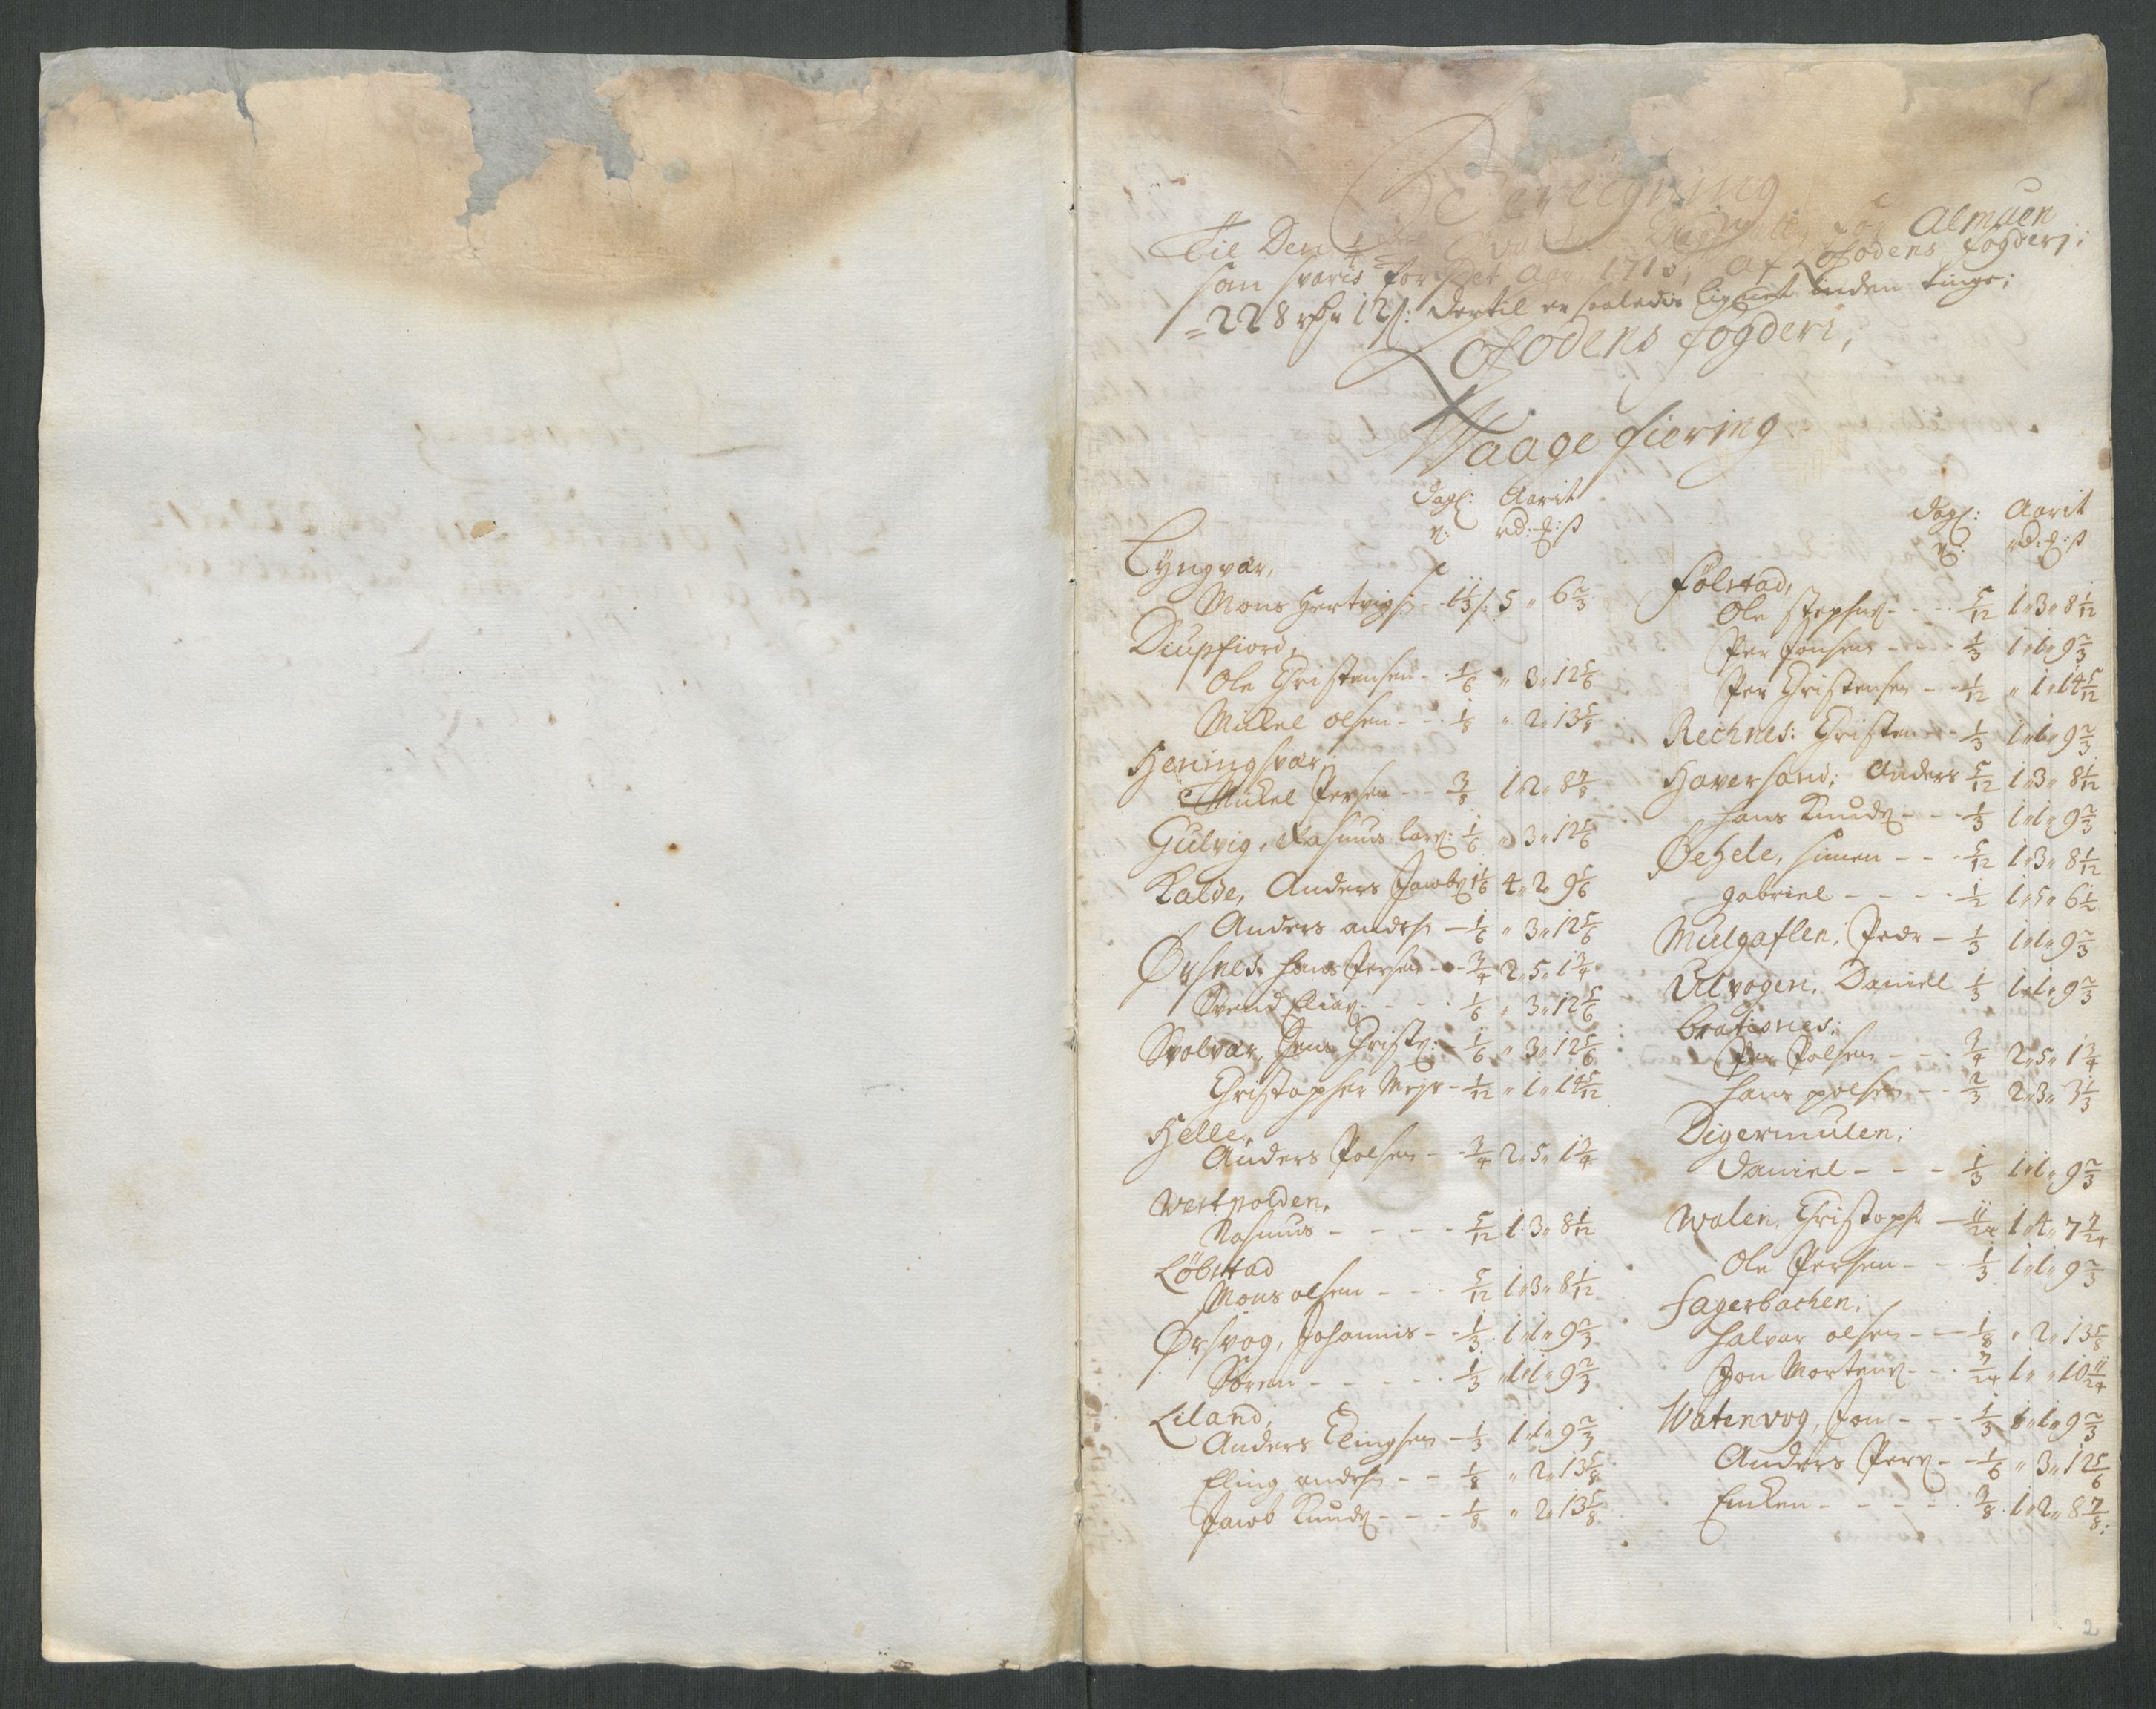 Bereigning
Til Den 1/4 for Almuen
som svaris for Det Aar 1713, af Lofodens fogderj;
= 228 rdr 12 s: dertil er saaledis lignet inden tinge;
Lofodens fogderi,
Waage fiering
dagl: Aarit
v: rd: ß
Lyngvær,
Mons Hertvigs: - 1 1/3 5 " 6 2/3
Diupfiord;
Ole Christensen - 1/6 " 3 " 12 5/6
Mickel olsen - - 1/8 " 2 " 13 5/8
Heningsvær;
Mickel Persen - - 3/8 1 " 2 " 8 7/8
Gulvig, Rasmus lars: 1/6 " 3 " 12 5/6
Kalde, Anders Jacobs 1 1/6 4 " 2 " 9 5/6
Anders anders: - 1/6 " 3 " 12 5/6
Ørsnes: hans Persen - 3/4 2 " 5 " 1 3/4
Svend Elias - - - 1/6 " 3 " 12 5/6
Svolvær, Jens Christ: - 1/6 " 3 " 12 5/6
Christopher Mejr - 1/12 " 1 " 14 5/12
Helle,
Anders Polsen - 3/4 2 " 5 " 1 3/4
Westpolden,
Rasmus - - - - 5/12 1 " 3 " 8 1/12
Löbstad
Mons olsen - - - 5/12 1 " 3 " 8 1/12
Ørsvog, Johannis - - 1/3 1 " 1 " 9 2/3
Sören - - - - - 1/3 1 " 1 " 9 2/3
Liland;
Anders Elingsen - 1/3 1 " 1 " 9 2/3
Eling anders: - - 1/8 " 2 " 13 5/8
Jacob Knuds - - - 1/8 " 2 " 13 5/8
dagl: Aarit
v: rd: ß
Fölstad,
Ole Stephens - - - 5/12 1 " 3 " 8 1/12
Per Jonsen - - - 1/3 1 " 1 " 9 2/3
Per Christensen - - 1/12 " 1 " 14 5/12
Rechnes: Christen - 1/3 1 " 1 " 9 2/3
Haversand; Anders 5/12 1 " 3 " 8 1/12
hans Knuds - - - 1/3 1 " 1 " 9 2/3
Øehele, Simen - - - 5/12 1 " 3 " 8 1/12
gabriel - - - - 1/2 1 " 5 " 6 1/2
Mulgaflen, Peder - 1/3 1 " 1 " 9 2/3
Ulvogen, Daniell 1/3 1 " 1 " 9 2/3
bratisnes;
Per Polsen - - - 3/4 2 " 5 " 1 3/4
hans polsen - - 2/3 2 " 3 " 3 1/3
Digermulen;
Daniel - - - 1/3 1 " 1 " 9 2/3
Walen, Christopher - 11/24 1 " 4 " 7 7/24
Ole Persen - - 1/3 1 " 1 " 9 2/3
Fagerbachen;
Halvar olsen - - 1/8 " 2 " 13 5/8
Jon Mortens - - - 7/24 1 " " 10 11/24
Watenvog, Jon - - - 1/3 1 " 1 " 9 2/3
Anders Pers - - 1/6 " 3 " 12 5/6
- - - - 3/8 1 " 2 " 8 7/8;
2